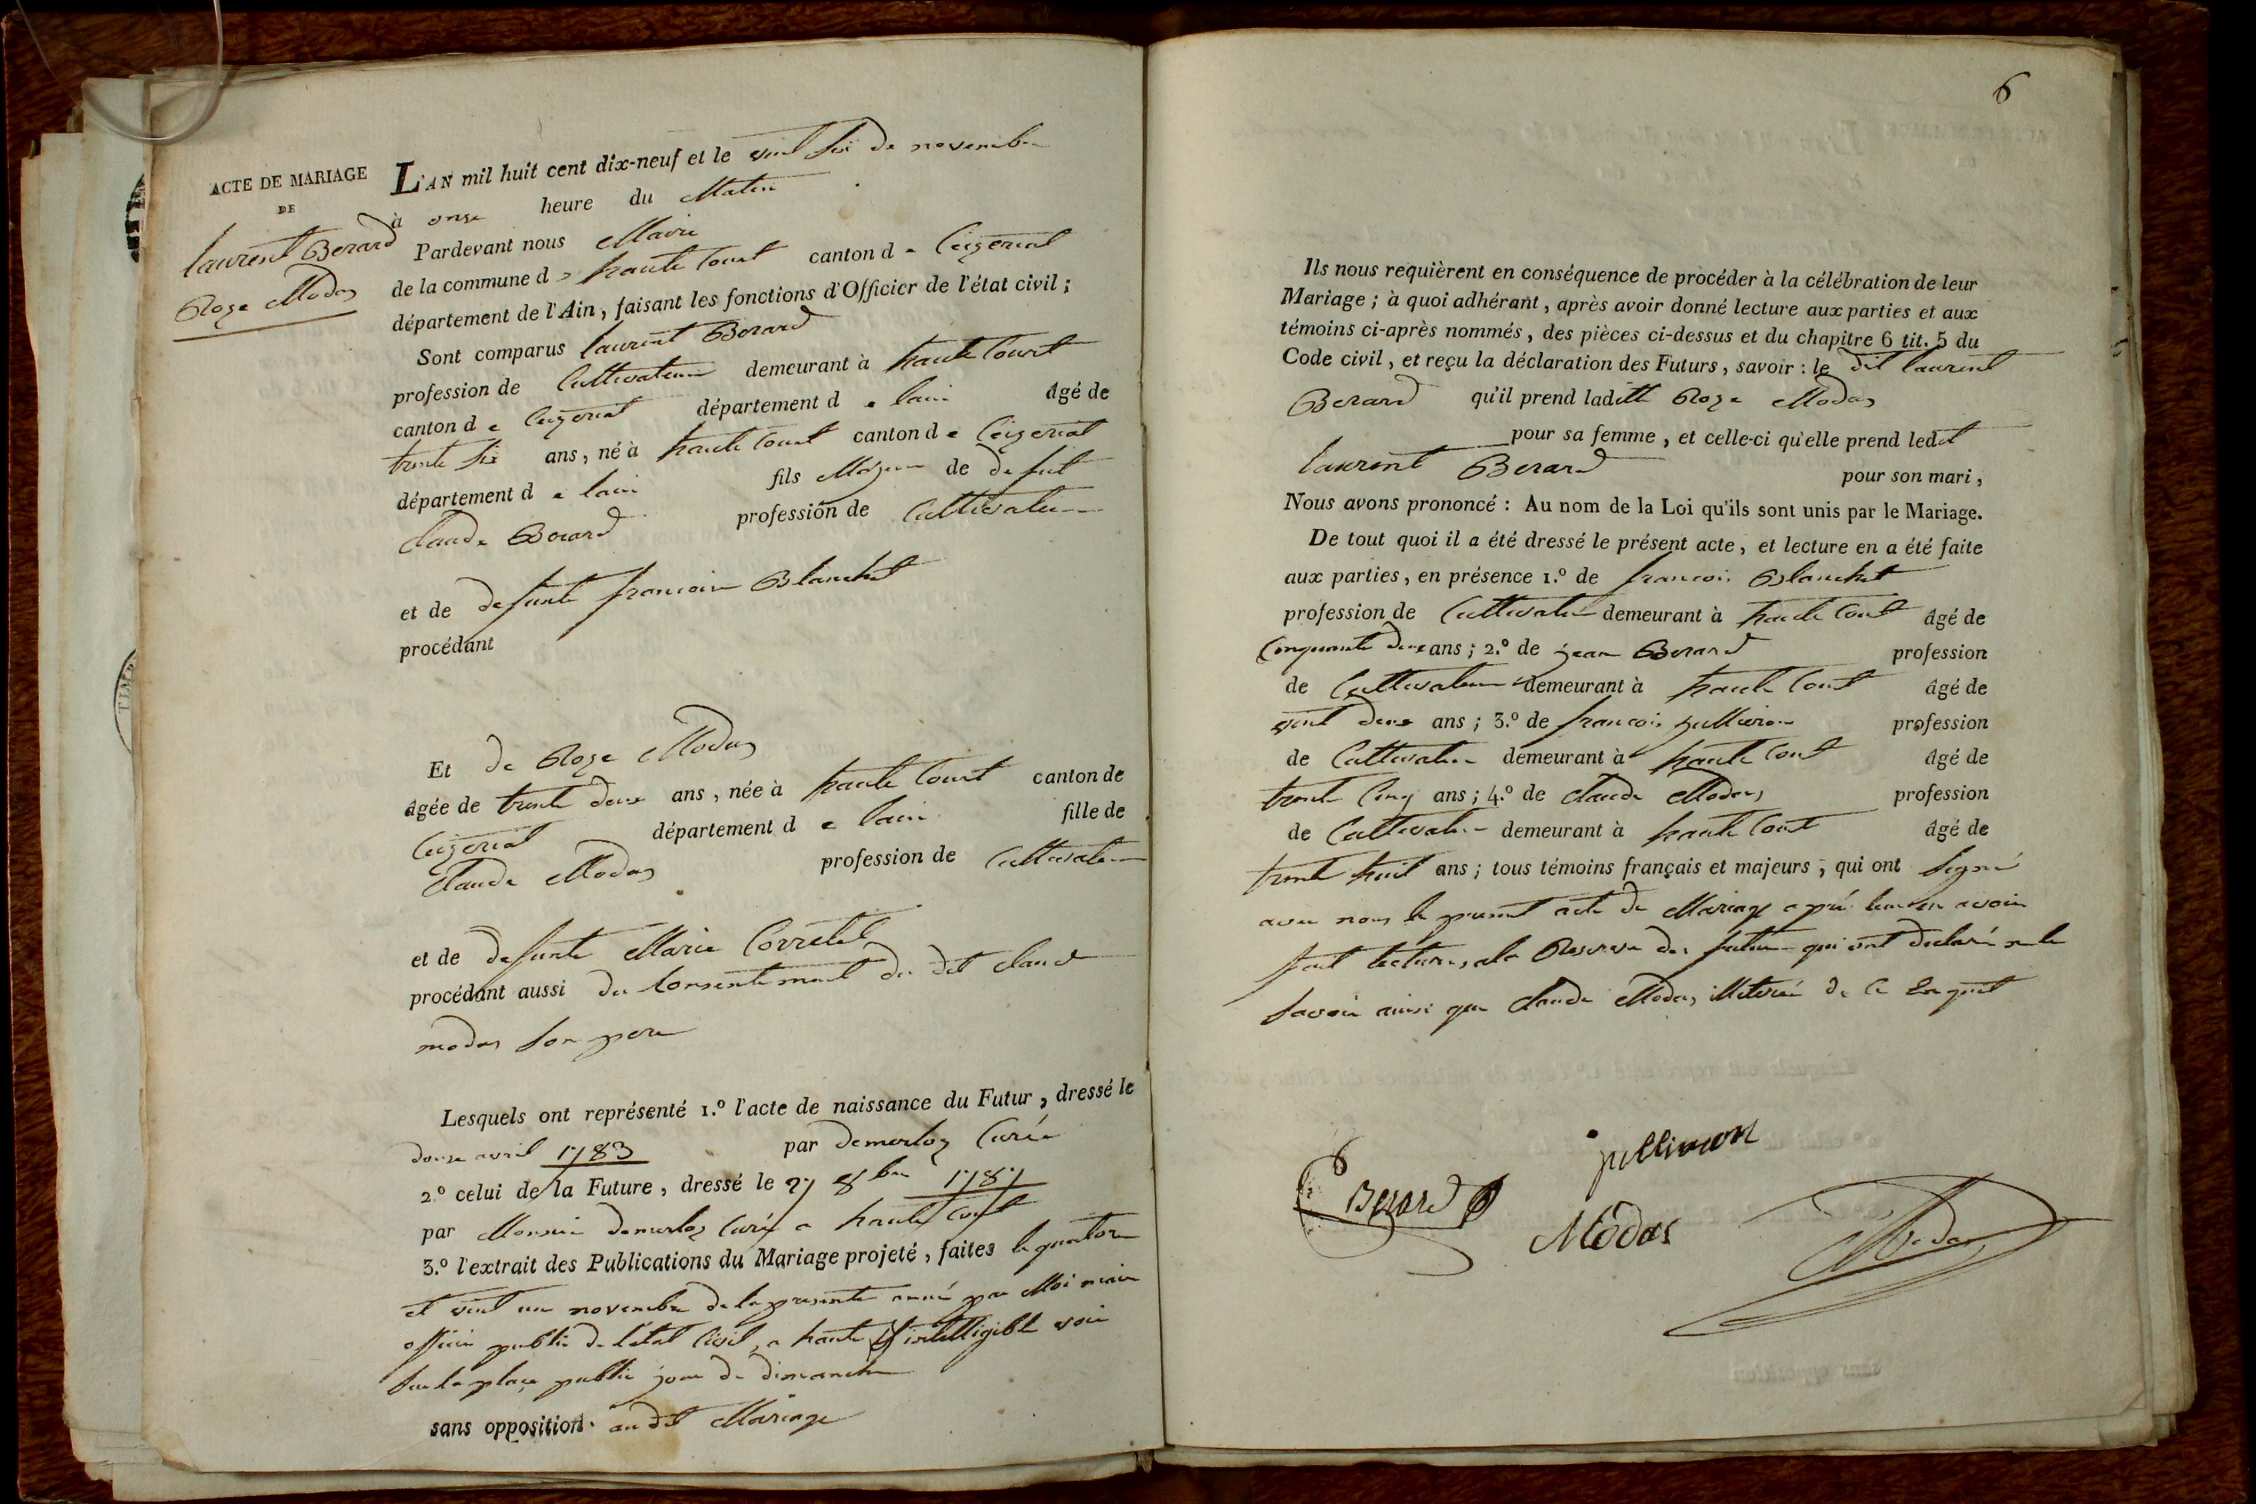 ACTE DE MARIAGE
DE
Laurent Berard
Roze Modas
L'AN mil huit cent dix-neuf et le vint six de novembre
à onze heure du Matin
Pardevant nous Maire
de la commune de haute Court canton de Ceizeriat
département de l'Ain, faisant les fonctions d'Officier de l'état civil;
Sont comparus laurent Berard
profession de Cultivateur demeurant à haute Court
canton de Ceizeriat département de lain âgé de
trente six ans, né à haute Court canton de Ceizeriat
département de lain fils Majeur de defunt
Claude Berard profession de Cultivateur
et de defunte francoise Blanchet
procédant
Et de Roze Modas
âgée de trente deux ans, née à haute Court canton de
Ceizeriat département de lain fille de
Claude Modas profession de Cultivateur
et de defunte Marie Corretel
procédant aussi du Consentement du dit claude
modas son pere
Lesquels ont représenté 1.º l'acte de naissance du Futur, dressé le
douze avril 1783 par demerloz Curée
2.º celui de la Future, dressé le 27 8bre 1787
par Monsieur demerloz Curée a haute Court
3.º l'extrait des Publications du Mariage projeté, faites le quatorze
et vint un novembre de la presente année par Moi maire
officier public de l'état Civil, a haute et intelligible voix
sur la place public jour de dimanche
sans opposition. au dit Mariage
6
Ils nous requièrent en conséquence de procéder à la célébration de leur
Mariage; à quoi adhérant, après avoir donné lecture aux parties et aux
témoins ci-après nommés, des pièces ci-dessus et du chapitre 6 tit. 5 du
Code civil, et reçu la déclaration des Futurs, savoir: le dit laurent
Berard qu'il prend laditte Roze Modas
pour sa femme, et celle-ci qu'elle prend ledit
laurent Berard pour son mari,
Nous avons prononcé: Au nom de la Loi qu'ils sont unis par le Mariage.
De tout quoi il a été dressé le présent acte, et lecture en a été faite
aux parties, en présence 1.º de francois Blanchet
profession de Cultivateur demeurant à haute Court âgé de
Cinquante deux ans; 2.º de jean Berard profession
de Cultivateur demeurant à haute Court âgé de
vint deux ans; 3.º de francois jullieron profession
de Cultivateur demeurant à haute Court âgé de
trente Cinq ans; 4.º de Claude Modas profession
de Cultivateur demeurant à haute Court âgé de
trente huit ans; tous témoins français et majeurs, qui ont Signé
avec nous le present acte de Mariage aprés leur en avoir
fait lecture, a la Reserve des futurs qui ont declaré ne le
savoir ainsi que Claude Modas de ce enquit
jullieron
Berard
Modas
Modas